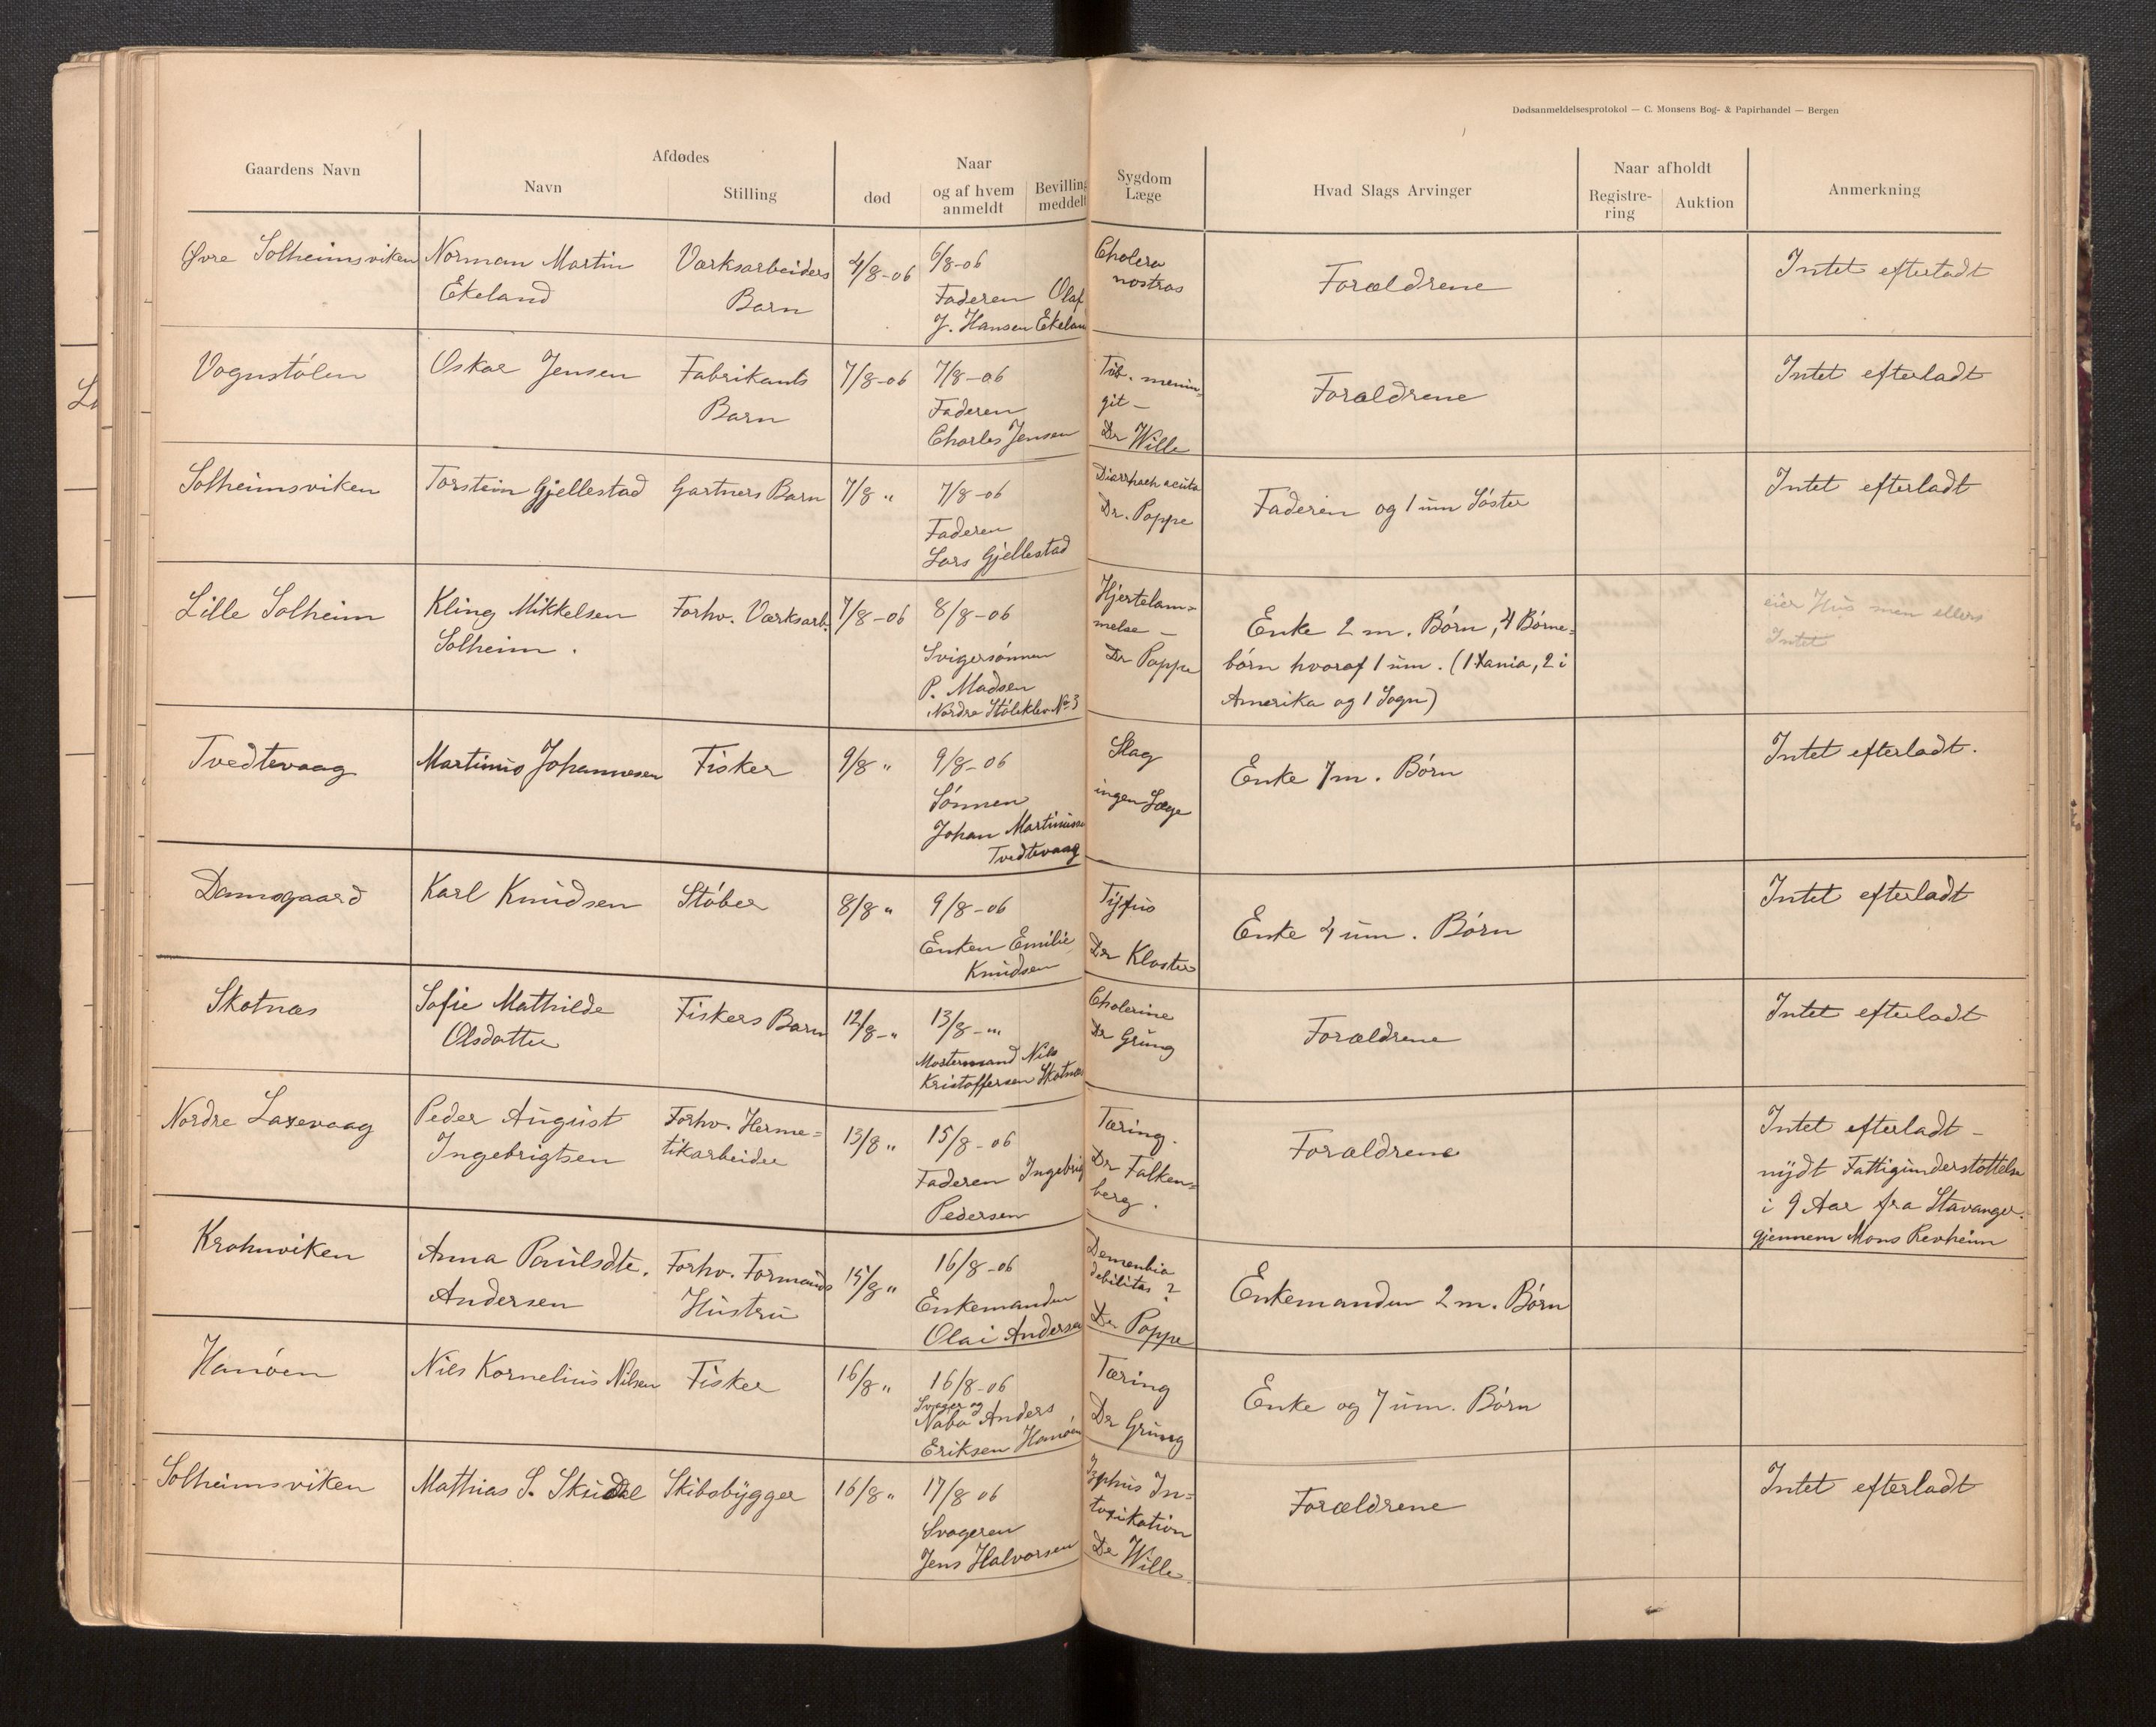 Dødsanmeldelsesprotokol — C. Monsens Bog- & Papirhandel — Bergen
Gaardens Navn
Afdødes
Navn
Stilling
død
Naar
og af hvem
anmeldt
Bevilling
meddelt
Sygdom
Læge
Hvad Slags Arvinger
Naar afholdt
Registre-
ring
Auktion
Anmerkning
Øvre Solheimsviken
Norman Martin
Ekeland
Værksarbeiders
Barn
4/8-06
6/8-06
Faderen Olaf
J. Hansen Ekeland
Cholera
nostras
Forældrene
Intet efterladt
Vognstölen
Oskar Jensen
Fabrikants
Barn
7/8-06
7/8-06
Faderen
Charles Jensen
Tub. menin-
git -
Dr Wille
Forældrene
Intet efterladt
Solheimsviken
Torstein Gjellestad
Gartners Barn
7/8 "
7/8-06
Faderen
Lars Gjellestad
Diarrhoeh acuta
Dr. Poppe
Faderen og 1 um Söster
Intet efterladt
Lille Solheim
Kling Mikkelsen
Solheim.
Forhv. Værksarb.
7/8-06
8/8-06
Svigersönnen
P. Madsen
Nordre Stölekleiv No 3
Hjertelam=
melse -
Dr Poppe
Enke 2 m. Börn, 4 Börne=
börn hvoraf 1 um. (1 Xania, 2 i
Amerika og 1 Sogn)
eier Hus men ellers
Intet
Tvedtevaag
Martinus Johannesen
Fisker
9/8 "
9/8-06
Sönnen
Johan Martinussen
Tvedtevaag
Slag
ingen Læge
Enke 7 m. Börn
Intet efterladt.
Damsgaard
Karl Knudsen
Stöber
8/8 "
9/8-06
Enken Emilie
Knudsen
Tyfus
Dr Kloster
Enke 4 um. Börn
Intet efterladt
Skotnæs
Sofie Mathilde
Olsdatter
Fiskers Barn
12/8-"
13/8-"
Mostermand Nils
Kristoffersen Skotnæs
Cholerine
Dr Grung
Forældrene
Intet efterladt
Nordre Laxevaag
Peder August
Ingebrigtsen
Forhv. Herme=
tikarbeider
13/8 "
15/8-06
Faderen Ingebrigt
Pedersen
Tæring.
Dr Falken=
berg.
Forældrene
Intet efterladt -
nydt Fattigunderstöttelse
i 9 Aar fra Stavanger.
gjennem Mons Revheim
Krohnviken
Anna Paulsdtr.
Andersen
Forhv. Formands
Hustru
15/8 "
16/8-06
Enkemanden
Olai Andersen
Dementia
debilitas ?
Dr Poppe
Enkemanden 2 m. Börn
Hanöen
Nils Kornelius Nilsen
Fisker
16/8 "
16/8-06
Svoger og
Nabo Anders
Eriksen Hanöen
Tæring
Dr Grung
Enke og 7 um. Börn
Solheimsviken
Mathias S. Skudal
Skibsbygger
16/8 "
17/8 06
Svogeren
Jens Halvorsen
Typhus In=
toxikation
Dr Wille
Forældrene
Intet efterladt